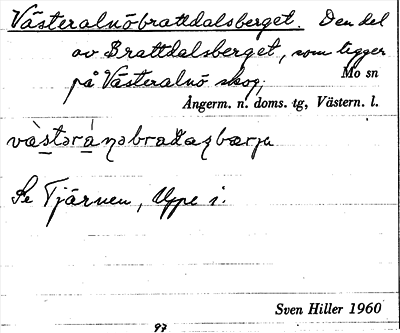 Västeralnöbrattdalsberget. Den del
av Brattdalsberget, som ligger
på Västeralnö skog,
Mo sn
Ångerm. n. doms. tg, Västern. l.
Se Tjärnen, Uppe i.
Sven Hiller 1960
97